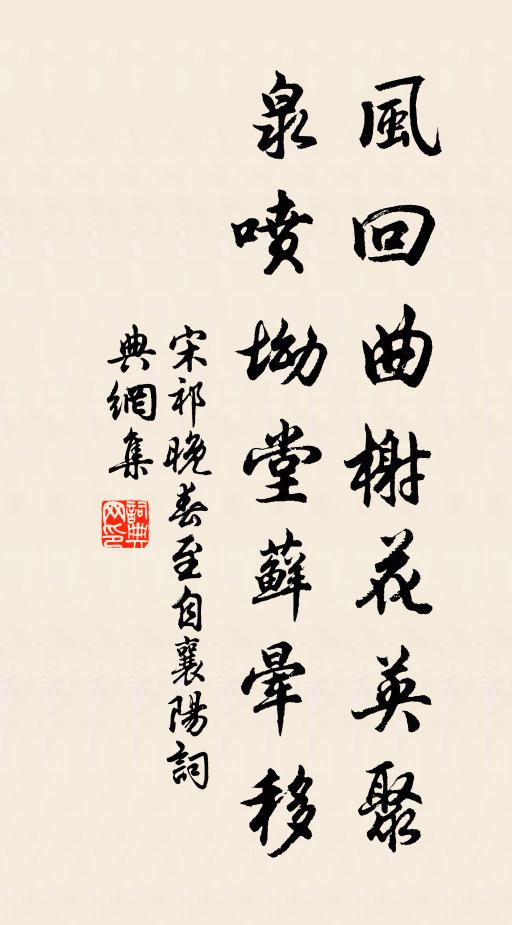 風回曲榭花英聚
泉噴坳堂蘚暈移
宋祁晚春至自襄陽詞
典網集
詞典
网印